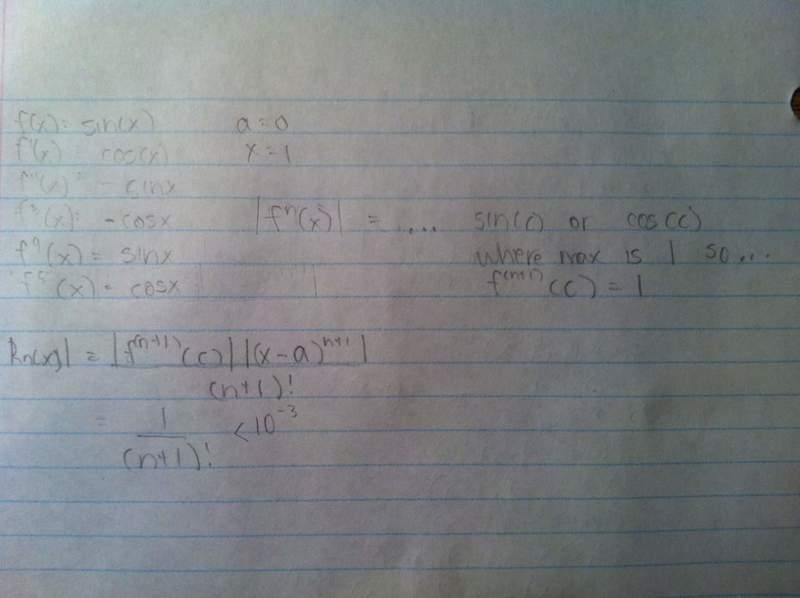 f(x) = sin(x) a = 0
f'(x) = cos(x) x = 1
f''(x) = -sinx
f³(x) = -cosx |fⁿ(x)| = .... sin(c) or cos(c)
f⁴(x) = sinx where max is 1 so...
f⁵(x) = cosx f⁽ⁿ⁺¹⁾(c) = 1
Rn(x)| = |f⁽ⁿ⁺¹⁾(c)||(x-a)ⁿ⁺¹|
(n+1)!
= 1 < 10⁻³
(n+1)!